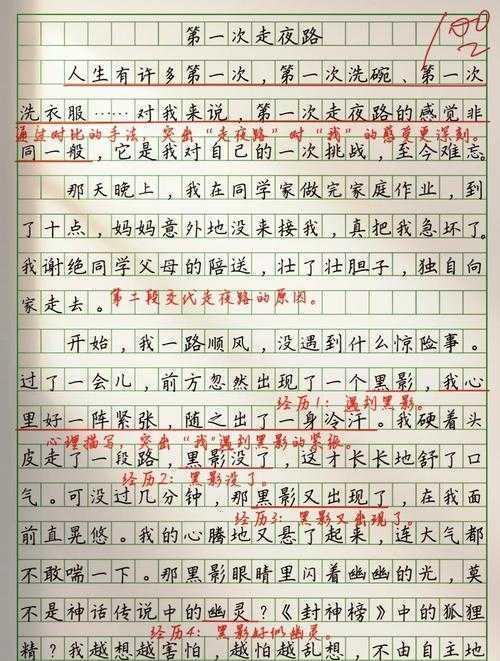 第一次走夜路
100
人生有许多第一次，第一次洗碗、第一次
洗衣服……对我来说，第一次走夜路的感觉非
通过对比的手法，突出“走夜路”时“我”的感受更深刻。
同一般，它是我对自己的一次挑战，至今难忘。
那天晚上，我在同学家做完家庭作业，到
了十点，妈妈意外地没来接我，真把我急坏了。
我谢绝同学父母的陪送，壮了壮胆子，独自向
家走去。第二段交代走夜路的原因。
开始，我一路顺风，没遇到什么惊险事。
过了一会儿，前方忽然出现了一个黑影，我心
经历1：遇到黑影。
里好一阵紧张，随之出了一身冷汗。我硬着头
心理描写，突出“我”遇到黑影的紧张。
皮走了一段路，黑影没了，这才长长地舒了口
经历2：黑影没了。
气。可没过几分钟，那黑影又出现了，在我面
经历3：黑影又出现了。
前直晃悠。我的心腾地又悬了起来，连大气都
不敢喘一下。那黑影眼睛里闪着幽幽的光，莫
不是神话传说中的幽灵？《封神榜》中的狐狸
经历4：黑影好似幽灵。
精？我越想越害怕，越怕越乱想，不由自主地